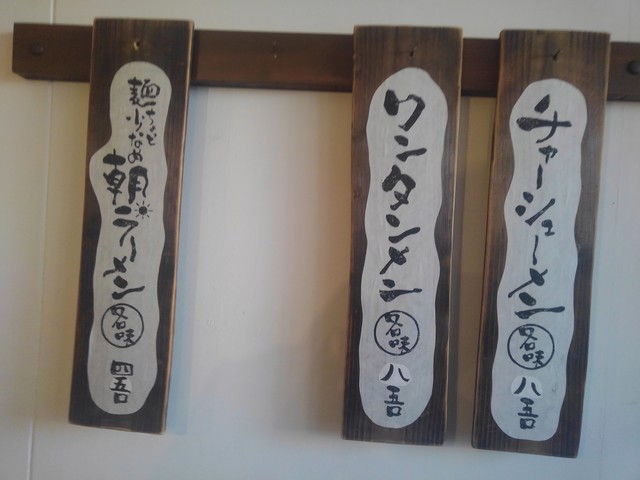 チャーシューメン
各味
八吾
ワンタンメン
各味
八吾
麺ちょっと
少なめ
朝ラーメン
各味
四吾